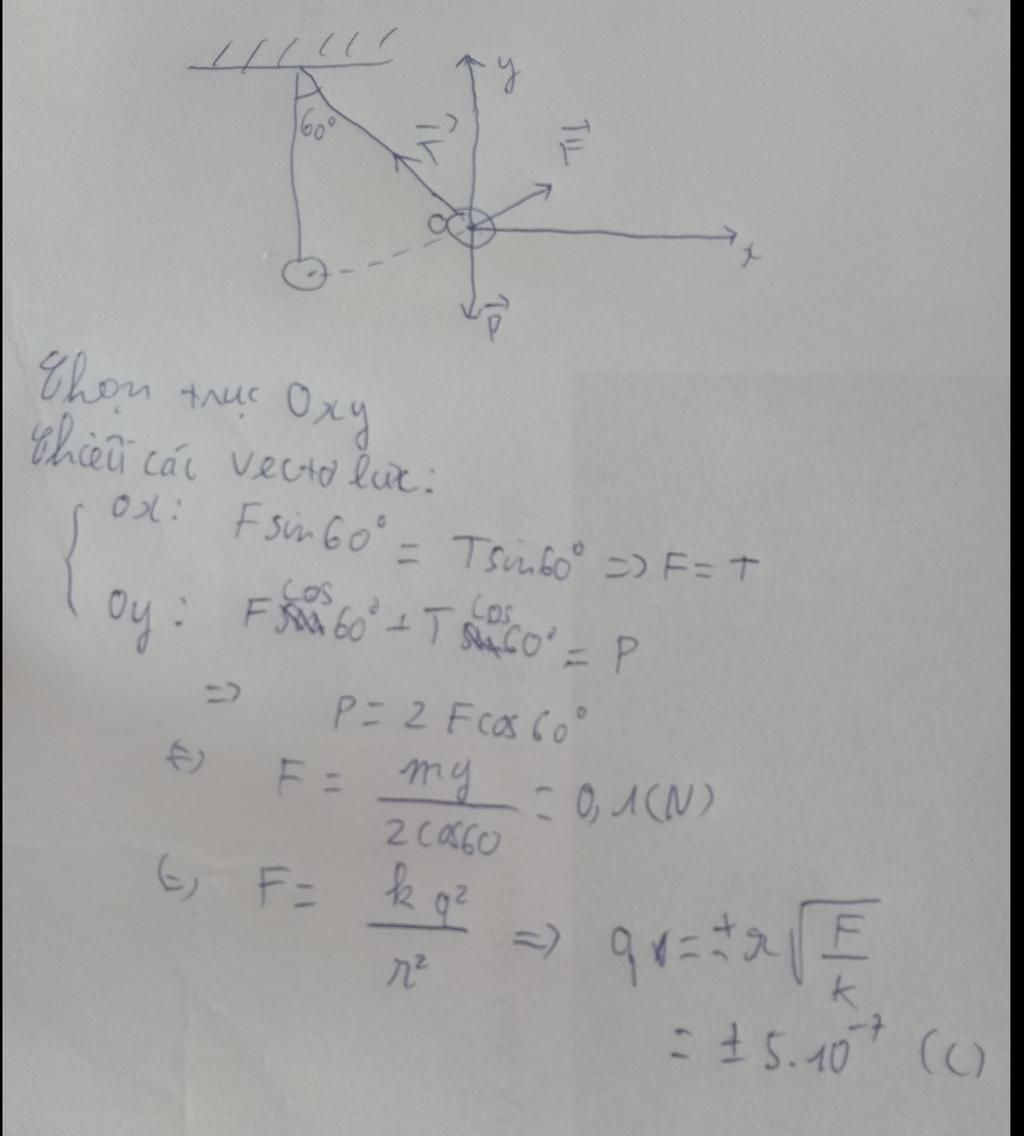 y
60°
T
F
O
x
P
Chọn trục Oxy
Chiếu các vectơ lực:
Ox: F sin 60° = T sin 60° => F = T
Oy: F cos 60° + T cos 60° = P
=> P = 2 F cos 60°
<=> F = mg / 2 cos 60 = 0,1 (N)
<=> F = k q² / r² => q = ± r √(F / k)
= ± 5.10⁻⁷ (C)